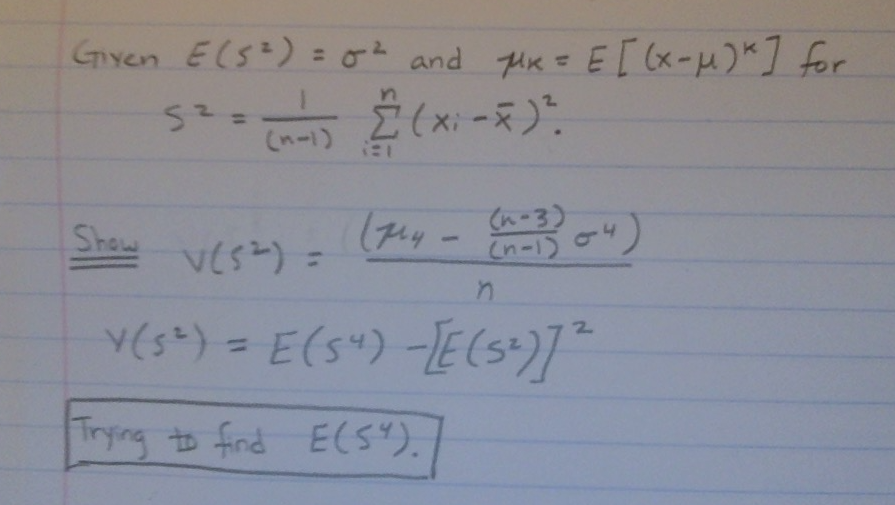 Given E(S²) = σ² and μₖ = E[(x-μ)ᵏ] for
S² = 1/(n-1) Σᵢ₌₁ⁿ (xᵢ - x̄)².
Show V(S²) = (μ₄ - (n-3)/(n-1) σ⁴) / n
V(S²) = E(S⁴) - [E(S²)]²
Trying to find E(S⁴).